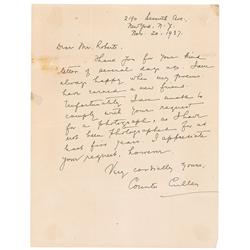 2190 Seventh Ave.
New York, N.Y.
Feb. 20, 1937.
Dear Mr. Roberts:
Thank you for your kind
letter of several days ago. I am
always happy when my poems
have earned a new friend.
Unfortunately I am unable to
comply with your request
for a photograph, as I have
not been photographed for at
least five years. I appreciate
your request, however.
Very cordially yours,
Countee Cullen